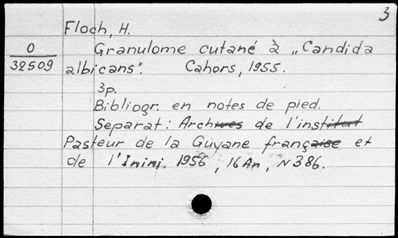 3
Floch, H.
O
32509
Granulome cutané à „Candida
albicans". Cahors, 1955.
3p.
Bibliogr. en notes de pied.
Separat: Archives de l'institut
Pasteur de la Guyane française et
de l'Inini 1956, 16An, N386.